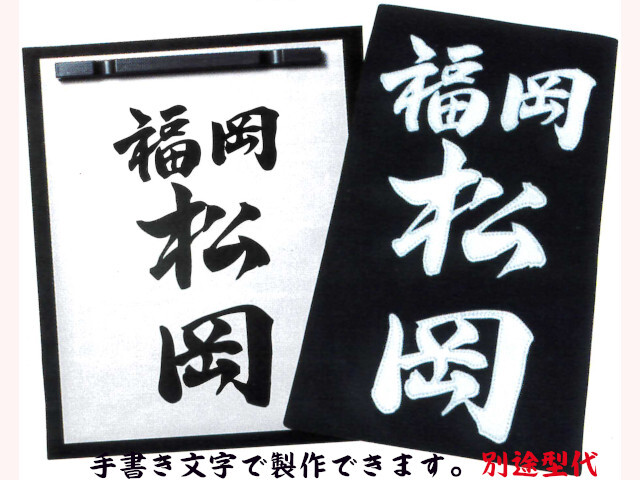 福岡
松
岡
福岡
松
岡
手書き文字で製作できます。別途型代